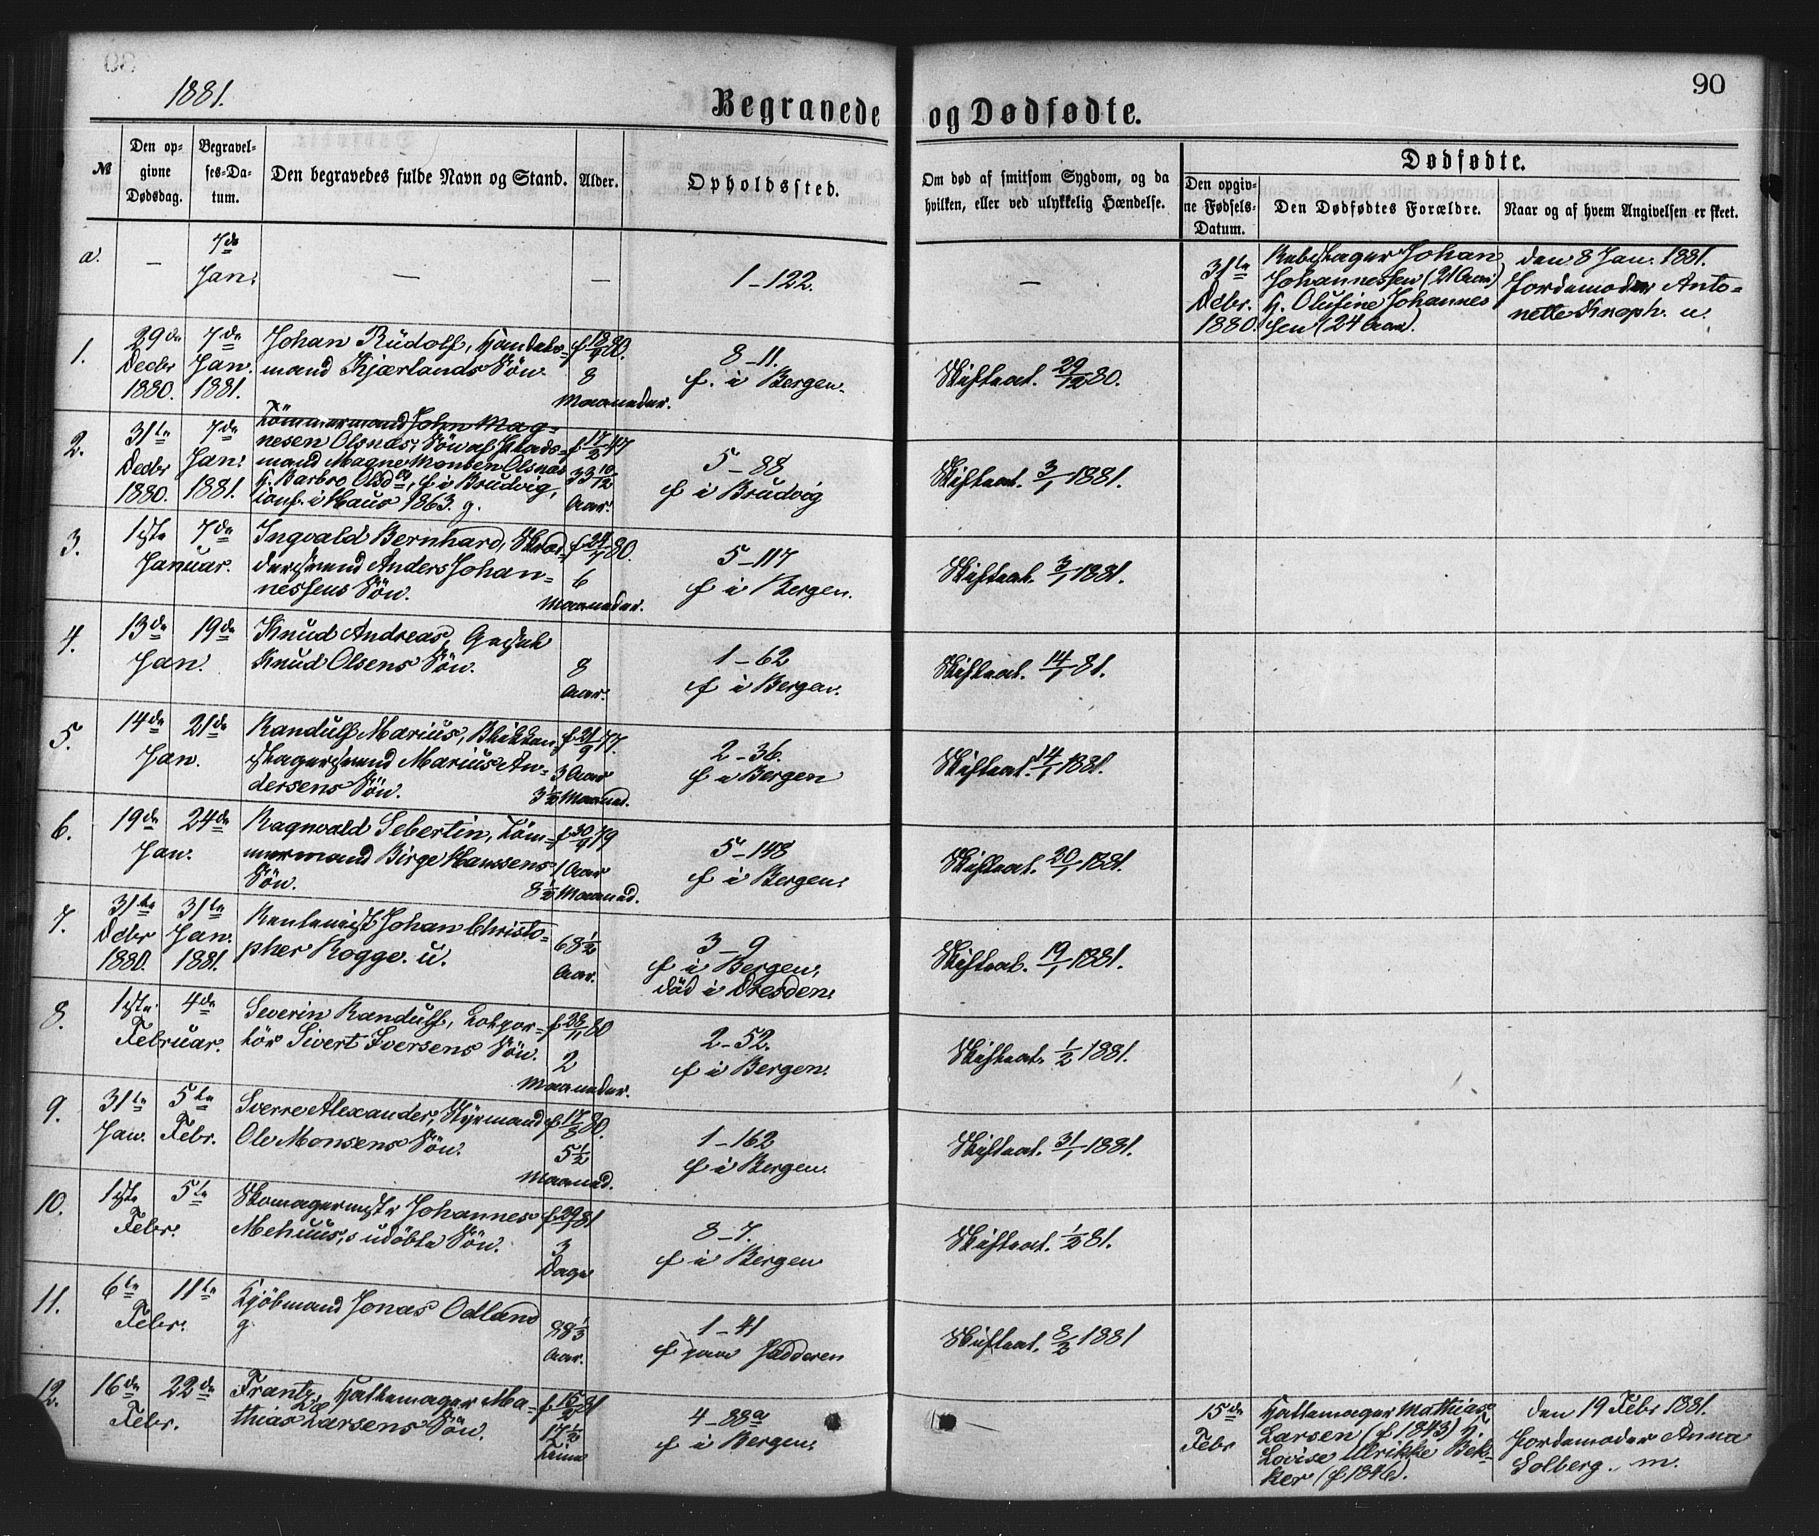 1881.
Begravede
og Dødfødte.
90
№
Den op-
givne
Dødsdag.
Begravel-
ses-Da-
tum.
Den begravedes fulde Navn og Stand.
Alder.
Opholdssted.
Om død af smitsom Sygdom, og da
hvilken, eller ved ulykkelig Hændelse.
Dødfødte.
Den opgiv-
ne Fødsels-
Datum.
Den Dødfødtes Forældre.
Naar og af hvem Angivelsen er skeet.
a.
—
7de
Jan.
—
—
1-122.
—
31te
Decbr.
1880.
Rebslager Johan
Johannessen (21 Aar)
h. Olufine Johannes
sen (24 Aar).
den 8 Jan. 1881.
Jordemoder Anto-
nette Knoph. u.
1.
29de
Decbr
1880.
7de
Jan.
1881.
Johan Rudolf, Handels-
mand Kjærlands Søn.
80.
8
Maaneder.
8-11.
f. i Bergen.
Skifteat. 29/12 80.
2.
31te
Decbr
1880.
7de
Jan.
1881.
Tømmermand John Mag-
nesen Olsnæs, Søn af
mand Magne Monsen Olsnæs
h. Barbro Olsdr, f. i Brudvig,
conf. i Haus 1863. g.
f 17/2 47
33 10/12
Aar.
5-88
f i Brudvig
Skifteat. 3/1 1881.
3.
1ste
Januar.
7de
Ingvald Bernhard, Skræd-
dersvend Anders Johan-
nessens Søn.
80.
6
Maaneder.
5-117
f i Bergen.
Skifteat. 3/1 1881.
4.
13de
Jan.
19de
Knud Andreas,
Knud Olsens Søn.
8
Aar.
1-62
f i Bergen.
Skifteat. 14/1 81.
5.
14de
Jan.
21de
Randulf Marius, Blikken-
slagersvend Marius An-
dersens Søn.
f 21/9 77.
3 Aar
3½ Maaned.
2-36.
f i Bergen
Skifteat. 14/1 1881.
6.
19de
Jan.
24de
Ragnvald Sebertin, Tøm-
mermand Birge Hanssens
Søn.
79
1 Aar
8½ Maaned.
5-148
f i Bergen.
Skifteat. 20/1 1881.
7.
31te
Decbr
1880.
31te
Jan.
1881.
Rentenist Johan Christo-
pher Rogge. u.
68½
Aar.
3-9
f i Bergen,
død i Dresden.
Skifteat. 19/1 1881.
8.
1ste
Februar.
4de
Severin Randulf,
Sivert Iversens Søn.
f 28/11 80
2
Maaneder.
2-52.
f i Bergen.
Skifteat. 1/2 1881.
9.
31te
Jan.
5te
Febr.
Sverre Alexander, Styrmand
Ole Monsens Søn.
f 17/8 80.
5½
Maaned.
1-162
f i Bergen.
Skifteat. 31/1 1881.
10.
1ste
Febr.
5te
Skomagermestr Johannes
Mehuus,s udøbte Søn.
f 29/1 81
3
Dage
8-7.
f i Bergen
Skifteat. 1/2 81.
11.
6te
Febr.
11te
Kjøbmand Jonas Odland
g.
88⅓
Aar.
1-41
f paa Jædderen
Skifteat. 8/2 1881
12.
16de
Febr.
22de
Frantz, Hattemager Ma-
thias Larsens Søn.
f 15/2 81
17½
Time
4-88a
f i Bergen.
15de
Febr
Hattemager Mathias
Larsen (f 1843) h.
Lovise Ulrikke Bek-
ker (f 1846).
den 19 Febr 1881.
Jordemoder Anna
Solberg. m.